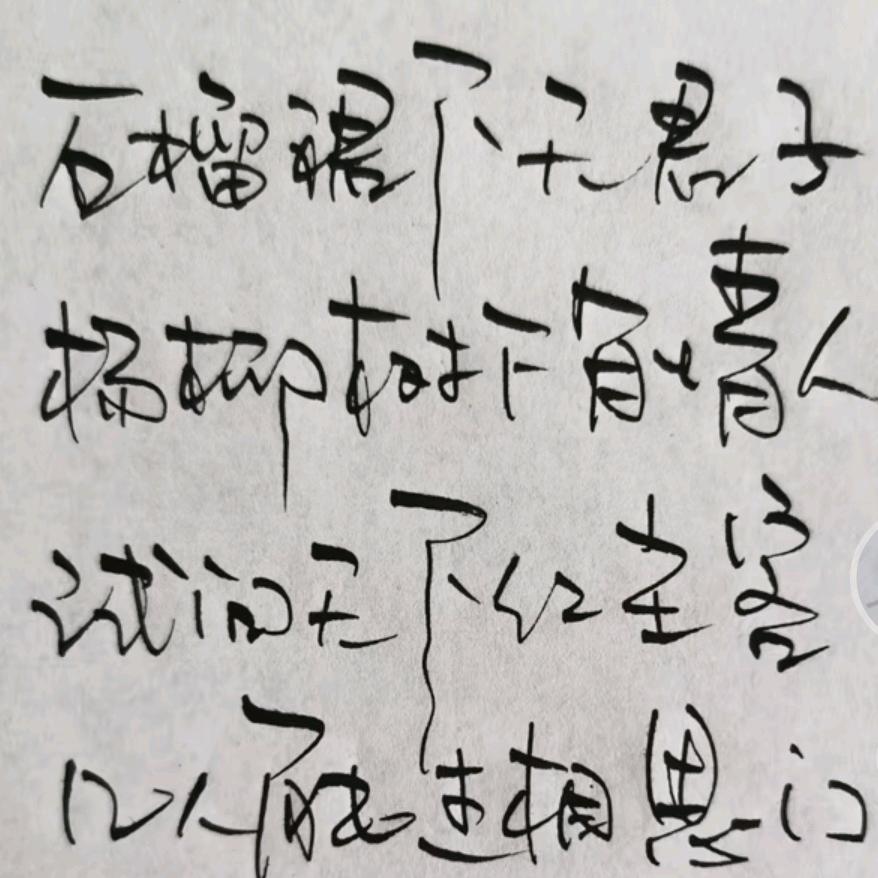 石榴裙下无君子
杨柳树下有情人
试问天下红尘客
几人能过相思门